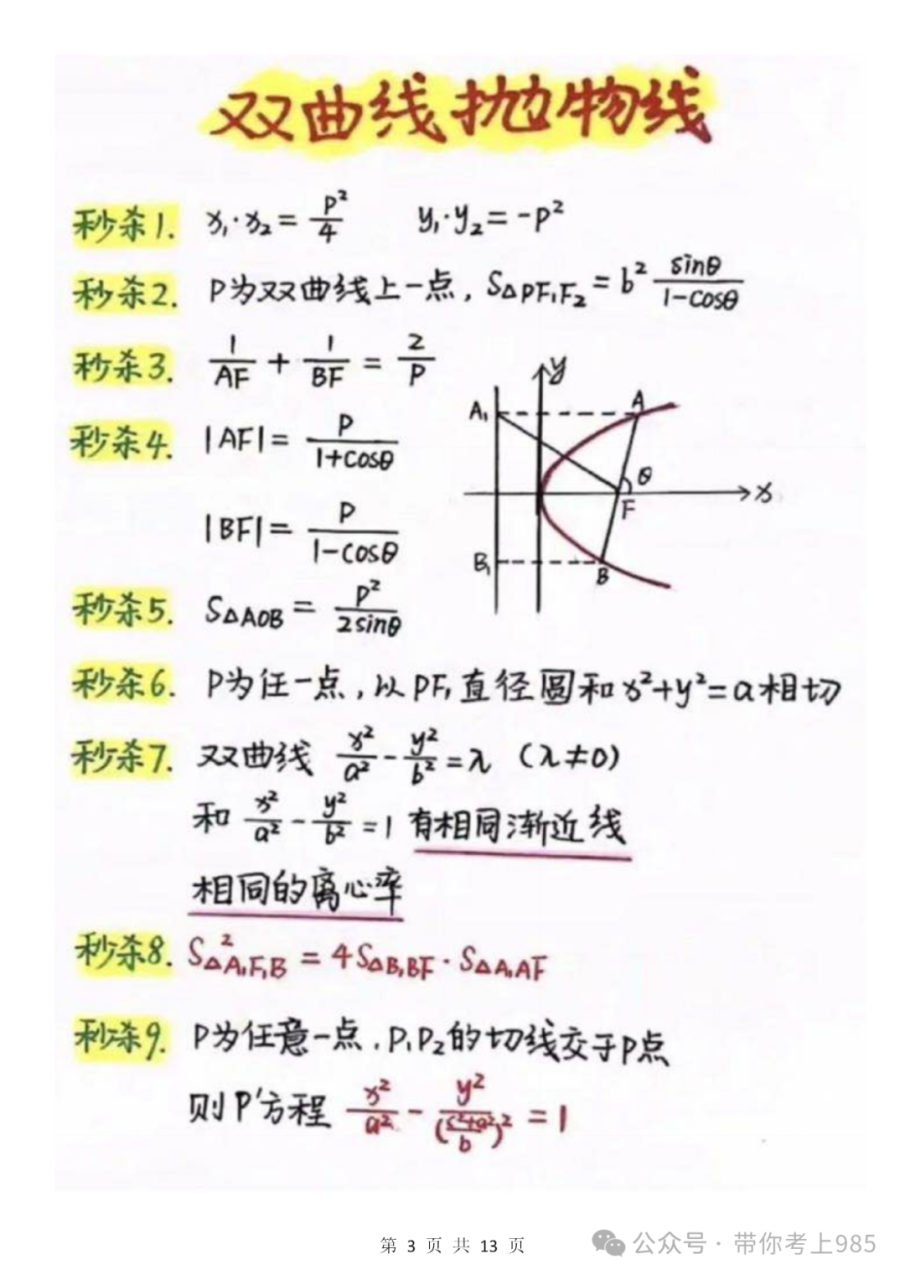 双曲线抛物线
秒杀1. x₁·x₂=p²/4 y₁·y₂=-p²
秒杀2. P为双曲线上一点, S△PF₁F₂=b² sinθ/(1-cosθ)
秒杀3. 1/AF + 1/BF = 2/P
秒杀4. |AF|= P/(1+cosθ)
|BF|= P/(1-cosθ)
y
A₁
A
θ
x
F
B₁
B
秒杀5. S△AOB = P²/(2sinθ)
秒杀6. P为任一点,以PF₁直径圆和x²+y²=a相切
秒杀7. 双曲线 x²/a² - y²/b² =λ (λ≠0)
和 x²/a² - y²/b² =1 有相同渐近线
相同的离心率
秒杀8. S²△A₁F₁B = 4S△B₁BF · S△A₁AF
秒杀9. P为任意一点.P₁P₂的切线交于P点
则P'方程 x²/a² - y²/((c²+a²)/b)² = 1
第 3 页 共 13 页
公众号 · 带你考上985